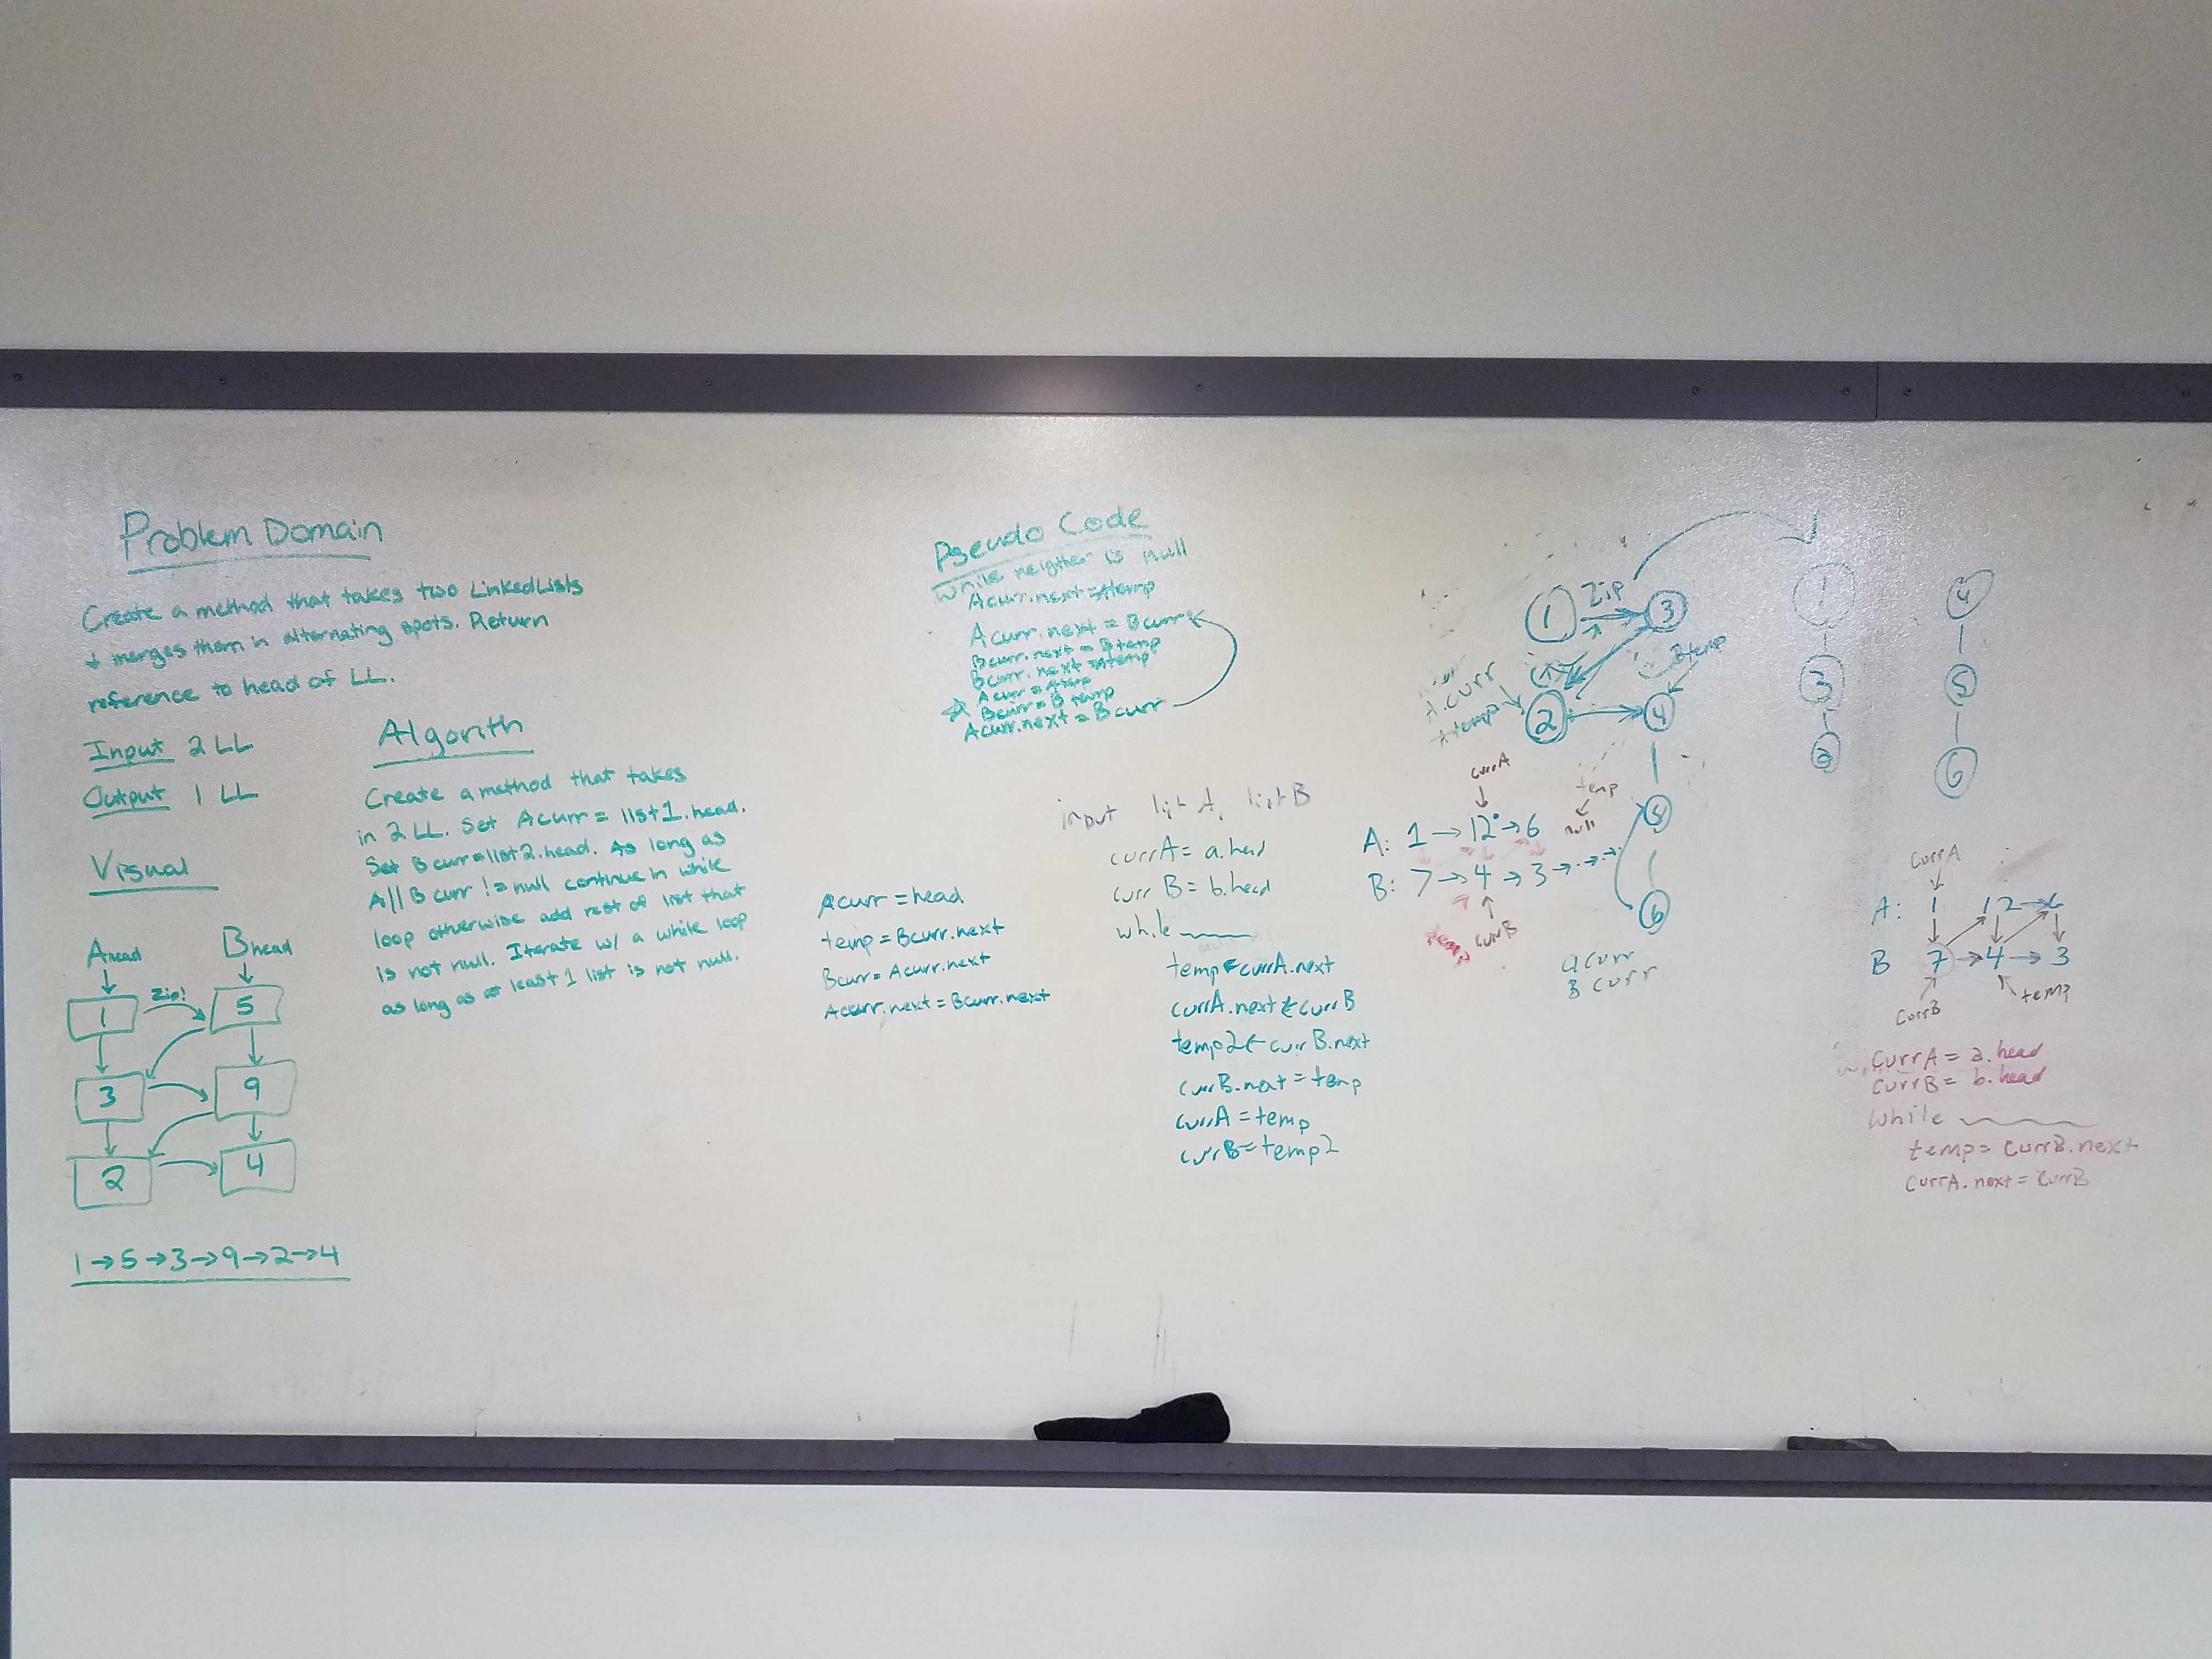 Problem Domain
Create a method that takes two LinkedLists
+ merges them in alternating spots. Return
reference to head of LL.
Input 2 LL
Output 1 LL
Visual
Ahead Bhead
1 Zip! 5
3 9
2 4
1→5→3→9→2→4
Algorith
Create a method that takes
in 2 LL. Set Acurr = list1.head.
Set Bcurr = list2.head. As long as
A||B curr != null continue in while
loop otherwise add rest of list that
is not null. Iterate w/ a while loop
as long as at least 1 list is not null.
Pseudo Code
while neigther is null
Acurr.next = Atemp
Acurr.next = Bcurr
Bcurr.next = Btemp
Bcurr.next = Atemp
Acurr = Atemp
Bcurr = B temp
Acurr.next = Bcurr
Acurr = head
temp = Bcurr.next
Bcurr = Acurr.next
Acurr.next = Bcurr.next
input list A, list B
currA = a.head
curr B = b.head
while
temp ← currA.next
currA.next ← currB
temp2 ← currB.next
currB.next = temp
currA = temp
currB = temp2
1 Zip 3
A.curr
Atemp
Btemp
2 4
5
6
currA
temp
A: 1 → 12 → 6 null
B: 7 → 4 → 3 → · → · →
temp currB
a curr
B curr
1 4
3 5
2 6
CurrA
A: 1 12 → 6
B 7 → 4 → 3
CurrB temp
CurrA = a.head
CurrB = b.head
while
temp = CurrB.next
CurrA.next = CurrB